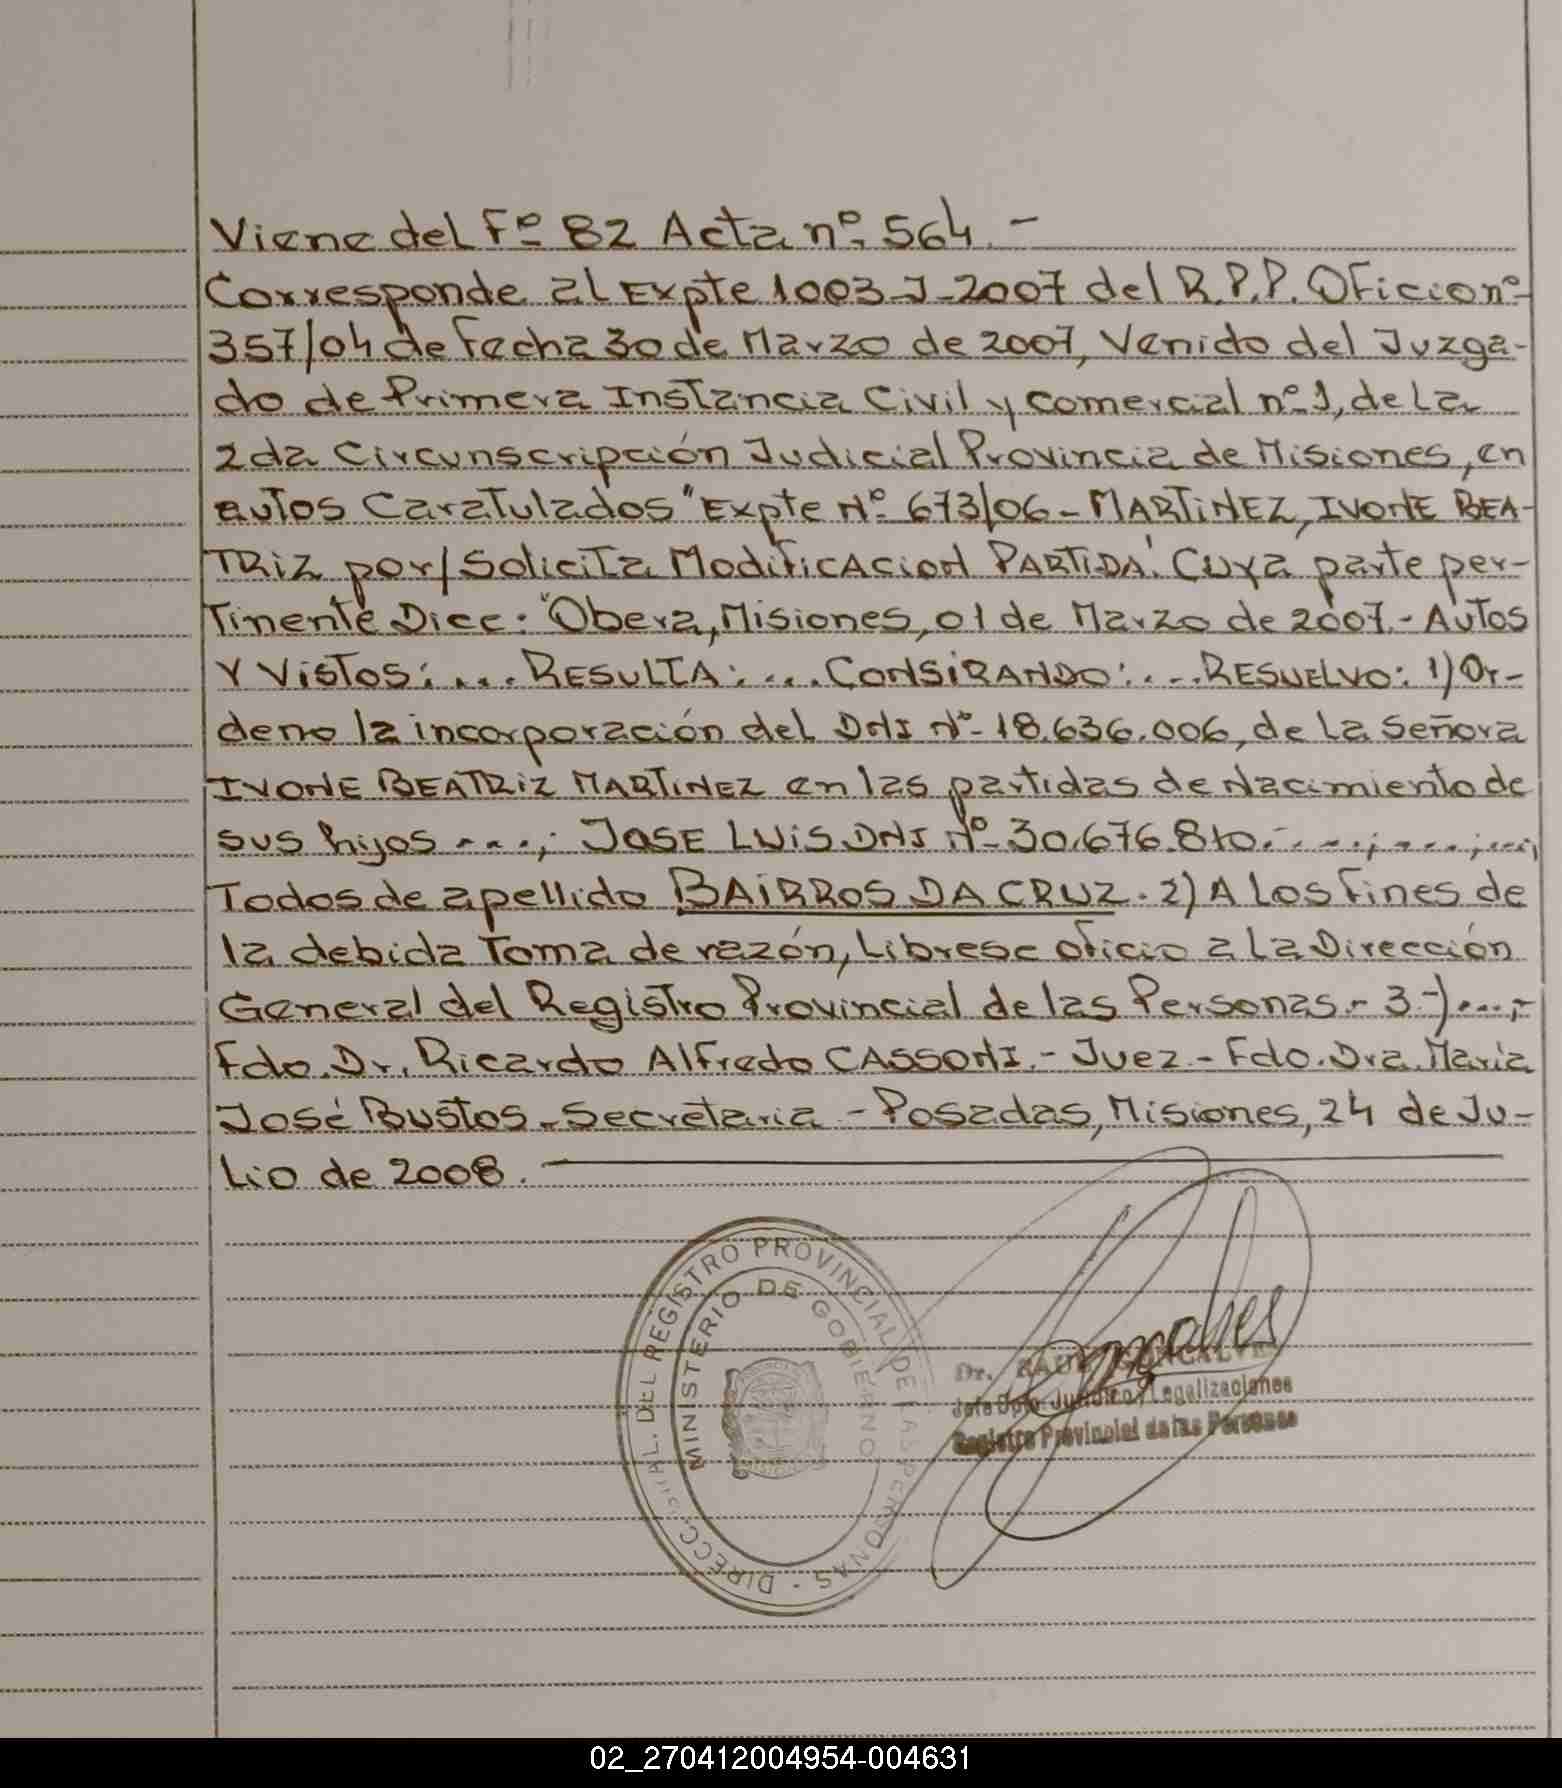 Viene del Fº 82 Acta nº 564.-
Corresponde al Expte 1003-J-2007 del R.P.P. Oficio nº
357/04 de fecha 30 de Marzo de 2007, Venido del Juzga-
do de Primera Instancia Civil y comercial nº 1, de La
2da Circunscripción Judicial Provincia de Misiones, en
autos Caratulados "Expte Nº 673/06 - MARTINEZ, IVONE BEA-
TRIZ por/Solicita Modificacion PARTIDA". Cuya parte per-
tinente Dice: "Obera, Misiones, 01 de Marzo de 2007.- Autos
Y Vistos:... RESULTA:... CONSIRANDO:... RESUELVO: 1) Or-
deno la incorporación del DNI Nº 18.636.006, de La Señora
IVONE BEATRIZ MARTINEZ en las partidas de Nacimiento de
sus hijos ...; JOSE LUIS DNI Nº 30.676.810. ...;...;...;
Todos de apellido BAIRROS DA CRUZ. 2) A Los Fines de
la debida Toma de razón, Librese oficio a La Dirección
General del Registro Provincial de las Personas.- 3-)...;-
Fdo. Dr. Ricardo Alfredo CASSONI.- Juez.- Fdo. Dra. Maria
José Bustos.- Secretaria - Posadas, Misiones, 24 de Ju-
Lio de 2008.
DIRECC. GRAL. DEL REGISTRO PROVINCIAL DE LAS PERSONAS -
MINISTERIO DE GOBIERNO
Dr. RAUL GONCALVES
Jefe Dpto. Jurídico y Legalizaciones
Registro Provincial de las Personas
02_270412004954-004631